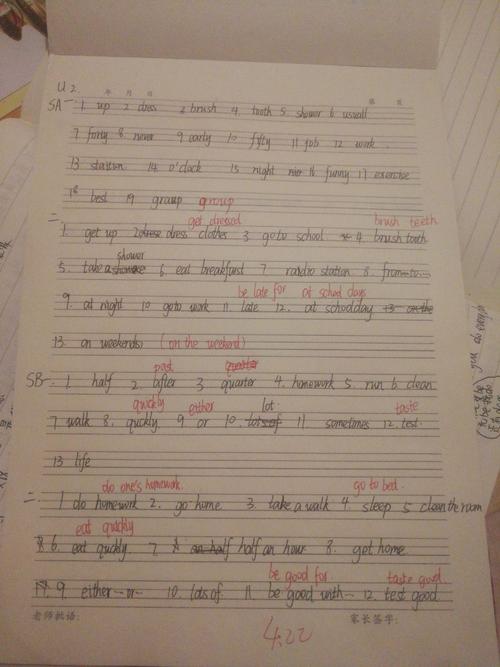 U2.
年 月 日
SA 一 1. up 2. dress 3. brush 4. tooth 5. shower 6. usuall
7 forty 8. never 9 early 10 fifty 11 job 12 work
13 station 14 o'clock 15 night 16 funny 17 exercise
18 best 19 group group
get dressed brush teeth
二 1. get up 2 dress clothes 3 go to school 4 brush tooth
shower
5. take a 6 eat breakfast 7 radio station 8 from---to---
be late for at school days
9. at night 10 go to work 11. late 12. at schoolday 13 on the
13 on weekends (on the weekend)
past quarter
SB 一. 1. half 2. after 3 quarter 4. homework 5. run 6 clean
quickly either lot taste
7 walk 8. quickly 9 or 10. lots of 11 sometimes 12. test
13 life
do one's homework. go to bed.
二 1 do homework 2. go home 3. take a walk 4. sleep 5 clean the room
eat quickly
6. eat quickly 7 an half half an hour 8. get home
be good for taste good
9. either---or--- 10. lots of 11. be good with--- 12. test good
老师批语: 家长签字:
4.22